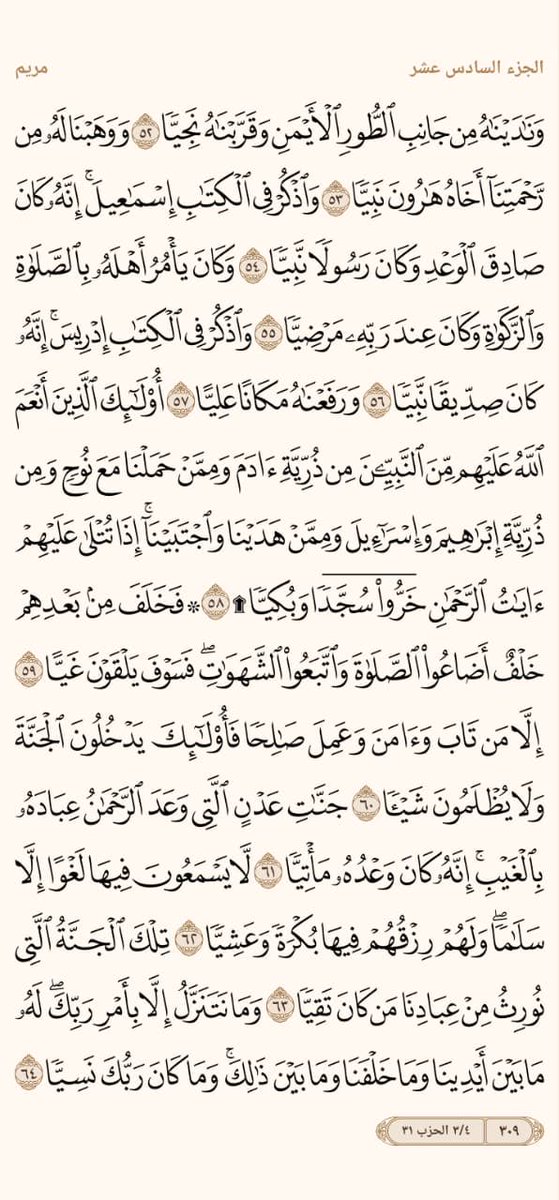 الجزء السادس عشر
مريم
وَنَٰدَيْنَٰهُ مِن جَانِبِ ٱلطُّورِ ٱلْأَيْمَنِ وَقَرَّبْنَٰهُ نَجِيًّا ٥٢ وَوَهَبْنَا لَهُۥ مِن
رَّحْمَتِنَآ أَخَاهُ هَٰرُونَ نَبِيًّا ٥٣ وَٱذْكُرْ فِى ٱلْكِتَٰبِ إِسْمَٰعِيلَ ۚ إِنَّهُۥ كَانَ
صَادِقَ ٱلْوَعْدِ وَكَانَ رَسُولًا نَّبِيًّا ٥٤ وَكَانَ يَأْمُرُ أَهْلَهُۥ بِٱلصَّلَوٰةِ
وَٱلزَّكَوٰةِ وَكَانَ عِندَ رَبِّهِۦ مَرْضِيًّا ٥٥ وَٱذْكُرْ فِى ٱلْكِتَٰبِ إِدْرِيسَ ۚ إِنَّهُۥ
كَانَ صِدِّيقًا نَّبِيًّا ٥٦ وَرَفَعْنَٰهُ مَكَانًا عَلِيًّا ٥٧ أُو۟لَٰٓئِكَ ٱلَّذِينَ أَنْعَمَ
ٱللَّهُ عَلَيْهِم مِّنَ ٱلنَّبِيِّـۧنَ مِن ذُرِّيَّةِ ءَادَمَ وَمِمَّنْ حَمَلْنَا مَعَ نُوحٍ وَمِن
ذُرِّيَّةِ إِبْرَٰهِيمَ وَإِسْرَٰٓءِيلَ وَمِمَّنْ هَدَيْنَا وَٱجْتَبَيْنَآ ۚ إِذَا تُتْلَىٰ عَلَيْهِمْ
ءَايَٰتُ ٱلرَّحْمَٰنِ خَرُّوا۟ سُجَّدًا وَبُكِيًّا ۩ ٥٨ ۞ فَخَلَفَ مِنۢ بَعْدِهِمْ
خَلْفٌ أَضَاعُوا۟ ٱلصَّلَوٰةَ وَٱتَّبَعُوا۟ ٱلشَّهَوَٰتِ ۖ فَسَوْفَ يَلْقَوْنَ غَيًّا ٥٩
إِلَّا مَن تَابَ وَءَامَنَ وَعَمِلَ صَٰلِحًا فَأُو۟لَٰٓئِكَ يَدْخُلُونَ ٱلْجَنَّةَ
وَلَا يُظْلَمُونَ شَيْـًٔا ٦٠ جَنَّٰتِ عَدْنٍ ٱلَّتِى وَعَدَ ٱلرَّحْمَٰنُ عِبَادَهُۥ
بِٱلْغَيْبِ ۚ إِنَّهُۥ كَانَ وَعْدُهُۥ مَأْتِيًّا ٦١ لَّا يَسْمَعُونَ فِيهَا لَغْوًا إِلَّا
سَلَٰمًا ۖ وَلَهُمْ رِزْقُهُمْ فِيهَا بُكْرَةً وَعَشِيًّا ٦٢ تِلْكَ ٱلْجَنَّةُ ٱلَّتِى
نُورِثُ مِنْ عِبَادِنَا مَن كَانَ تَقِيًّا ٦٣ وَمَا نَتَنَزَّلُ إِلَّا بِأَمْرِ رَبِّكَ ۖ لَهُۥ
مَا بَيْنَ أَيْدِينَا وَمَا خَلْفَنَا وَمَا بَيْنَ ذَٰلِكَ ۚ وَمَا كَانَ رَبُّكَ نَسِيًّا ٦٤
٣٠٩ ٣/٤ الحزب ٣١